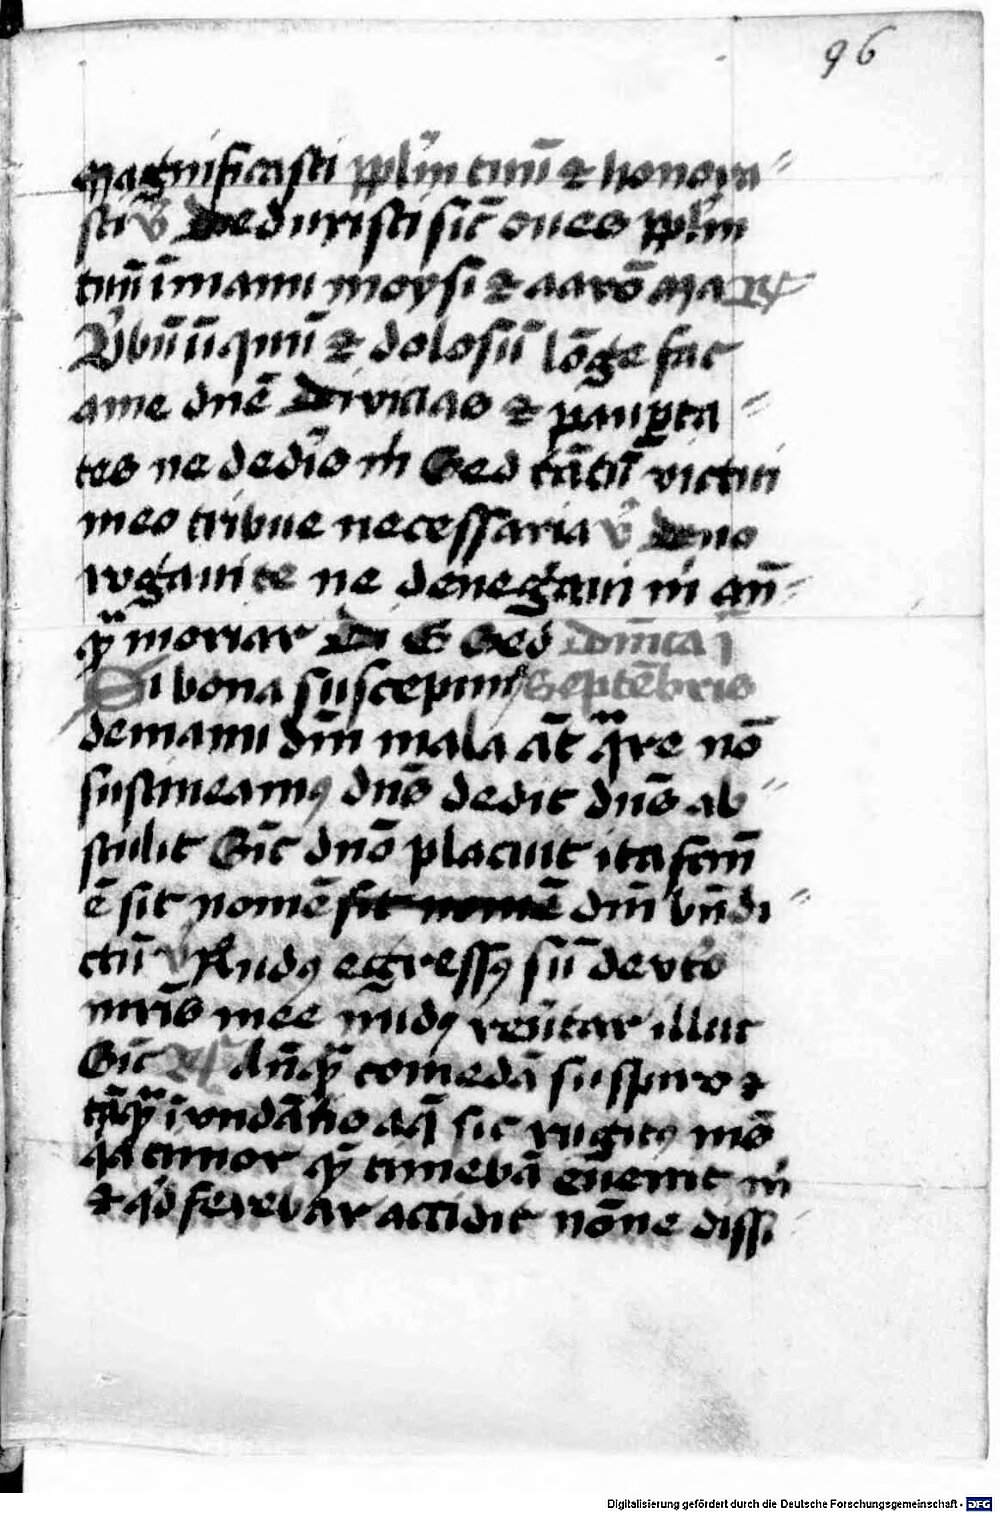 96
Magnificasti ppl̄m tuū ⁊ honora〃
sti v̄ Deduxisti sic̄ oues ppl̄m
tuū ī manu moysi ⁊ aarō Ma R̄
Vbū īiquū ⁊ dolosū lōge fac
a me dn̄e Divicias ⁊ paupta〃
tes ne dedīs m̄ Sed tātū victui
meo tribue necessaria v̄ Duo
rogaui te ne deneḡaui m̄ an̄〃
qͣ̄ moriar Di G Sed Dn̄ica j
Si bona suscepimꝰ Septēbris
de manu dn̄i mala āt qͣre nō
sustineamꝰ dn̄s dedit dn̄s ab〃
stulit Sic̄ dn̄o placuit ita fcm̄
ē sit nomē dn̄i bn̄di〃
ctū v Nudꝰ egressꝰ sū de vtō
mr̄is mee nudꝰ reūtar illuc
Sic̄ R̄ Anq̄ͣ comedā suspiro ⁊
tāqͣ̄ īvndātio aq̄ sic rugitꝰ meꝰ
qͣ timor qͣ̄ timebā euenit m̄
⁊ qd̄ ferebar accidit nōne dissi〃
Digitalisierung gefördert durch die Deutsche Forschungsgemeinschaft - DFG